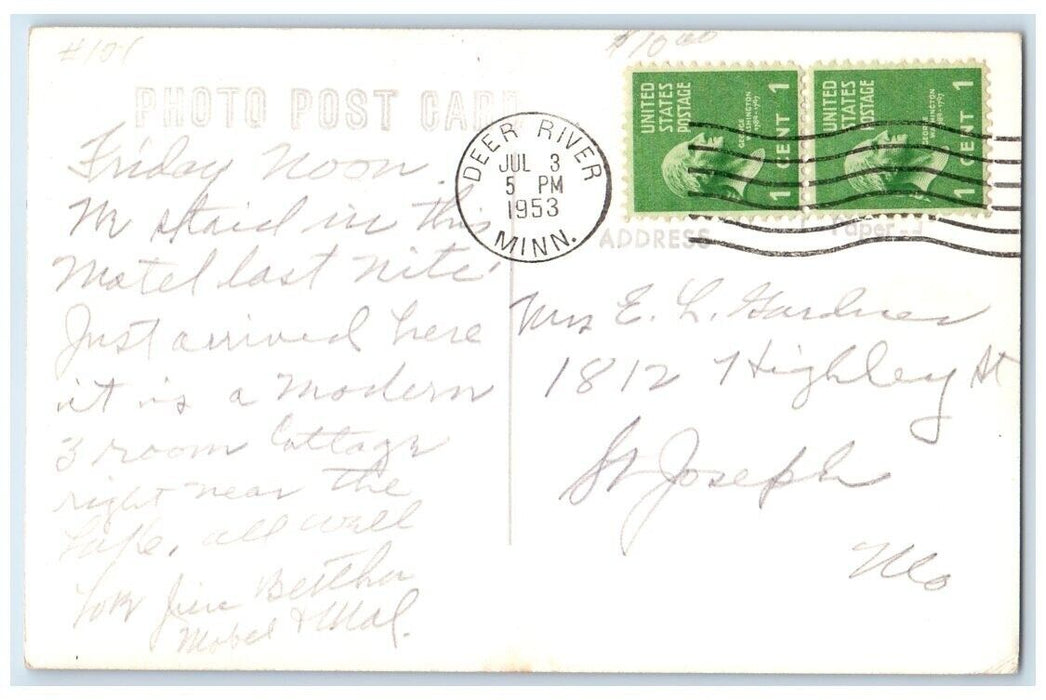 #121
$10.00
PHOTO POST CARD
Friday Noon.
We staid in this
Motel last nite'
Just arrived here
it is a Modern
3 room Cottage
right near the
Lake, all well
Jim Bertha
Mabel & Mal.
DEER RIVER
JUL 3
5 PM
1953
MINN.
UNITED
STATES
POSTAGE
GEORGE
WASHINGTON
1789-1797
1 CENT 1
UNITED
STATES
POSTAGE
GEORGE
WASHINGTON
1789-1797
1 CENT 1
ADDRESS
Paper
Mrs E. L. Gardner
1812 Highley St
St Joseph
Mo